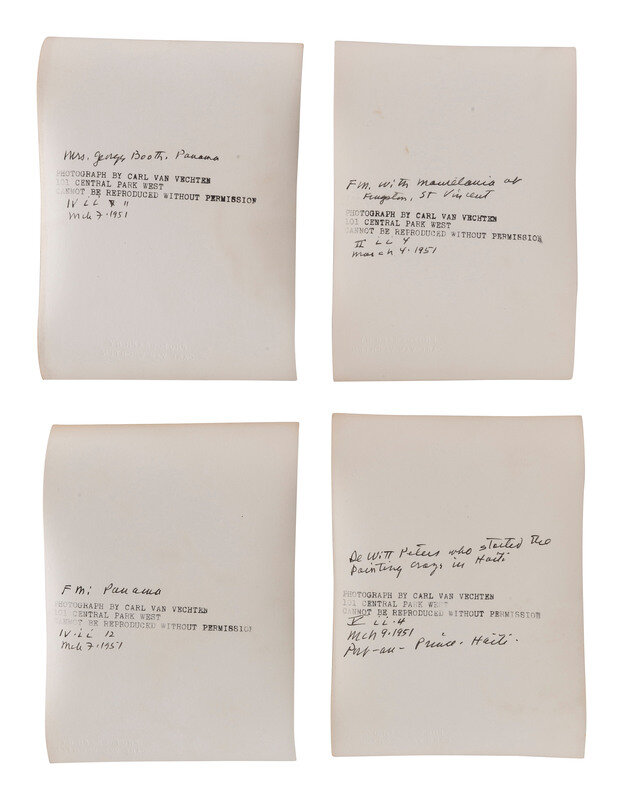 Mrs. George Booth, Panama
PHOTOGRAPH BY CARL VAN VECHTEN
101 CENTRAL PARK WEST
CANNOT BE REPRODUCED WITHOUT PERMISSION
IV LL 11
Mch 7.1951
FM. with Mauretania at
Kingston, St Vincent
PHOTOGRAPH BY CARL VAN VECHTEN
101 CENTRAL PARK WEST
CANNOT BE REPRODUCED WITHOUT PERMISSION
II LL 4
March 4.1951
FM: Panama
PHOTOGRAPH BY CARL VAN VECHTEN
101 CENTRAL PARK WEST
CANNOT BE REPRODUCED WITHOUT PERMISSION
IV.LL 12
Mch 7.1951
De Witt Peters who started the
painting craze in Haiti
PHOTOGRAPH BY CARL VAN VECHTEN
101 CENTRAL PARK WEST
CANNOT BE REPRODUCED WITHOUT PERMISSION
V LL.4
Mch 9.1951
Port-au-Prince. Haiti.